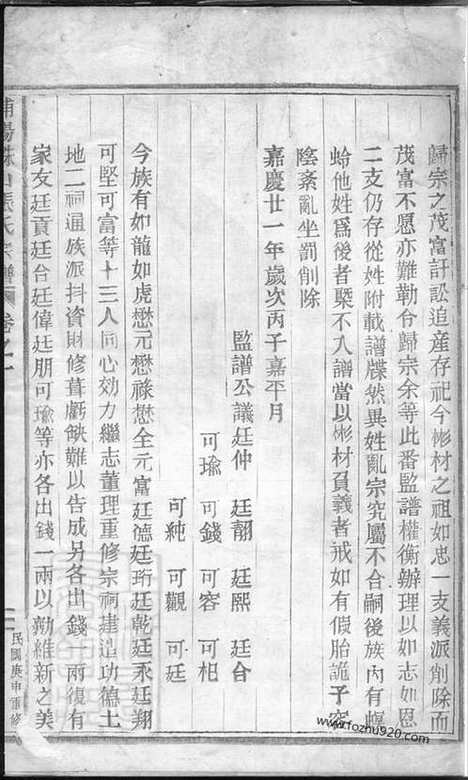 歸宗之茂富訐訟追產存祀今彬材之祖如忠一支義派削除而
茂富不愿亦難勒令歸宗余等此番監譜權衡辦理以如志如恩
二支仍存從姓附載譜牒然異姓亂宗究屬不合嗣後族內有螟
蛉他姓爲後者槩不入譜當以彬材負義者戒如有假胎詭子
陰紊亂坐罰削除
嘉慶廿一年歲次丙子嘉平月
監譜公議廷仲 廷翿 廷熙 廷台
可瑜 可錢 可容 可相
可純 可觀 可廷
今族有如龍如虎懋元懋祿懋全元富廷德廷珩廷乾廷永廷翔
可堅可富等十三人同心効力繼志董理重修宗祠建造功德土
地二祠通族派抖資財修葺虧缺難以告成另各出錢一兩復有
家友廷貢廷台廷偉廷朋可瑜等亦各出錢一兩以勷維新之美
浦陽珠山張氏宗譜 卷之一
民國庚申重修
www.fozhu920.com